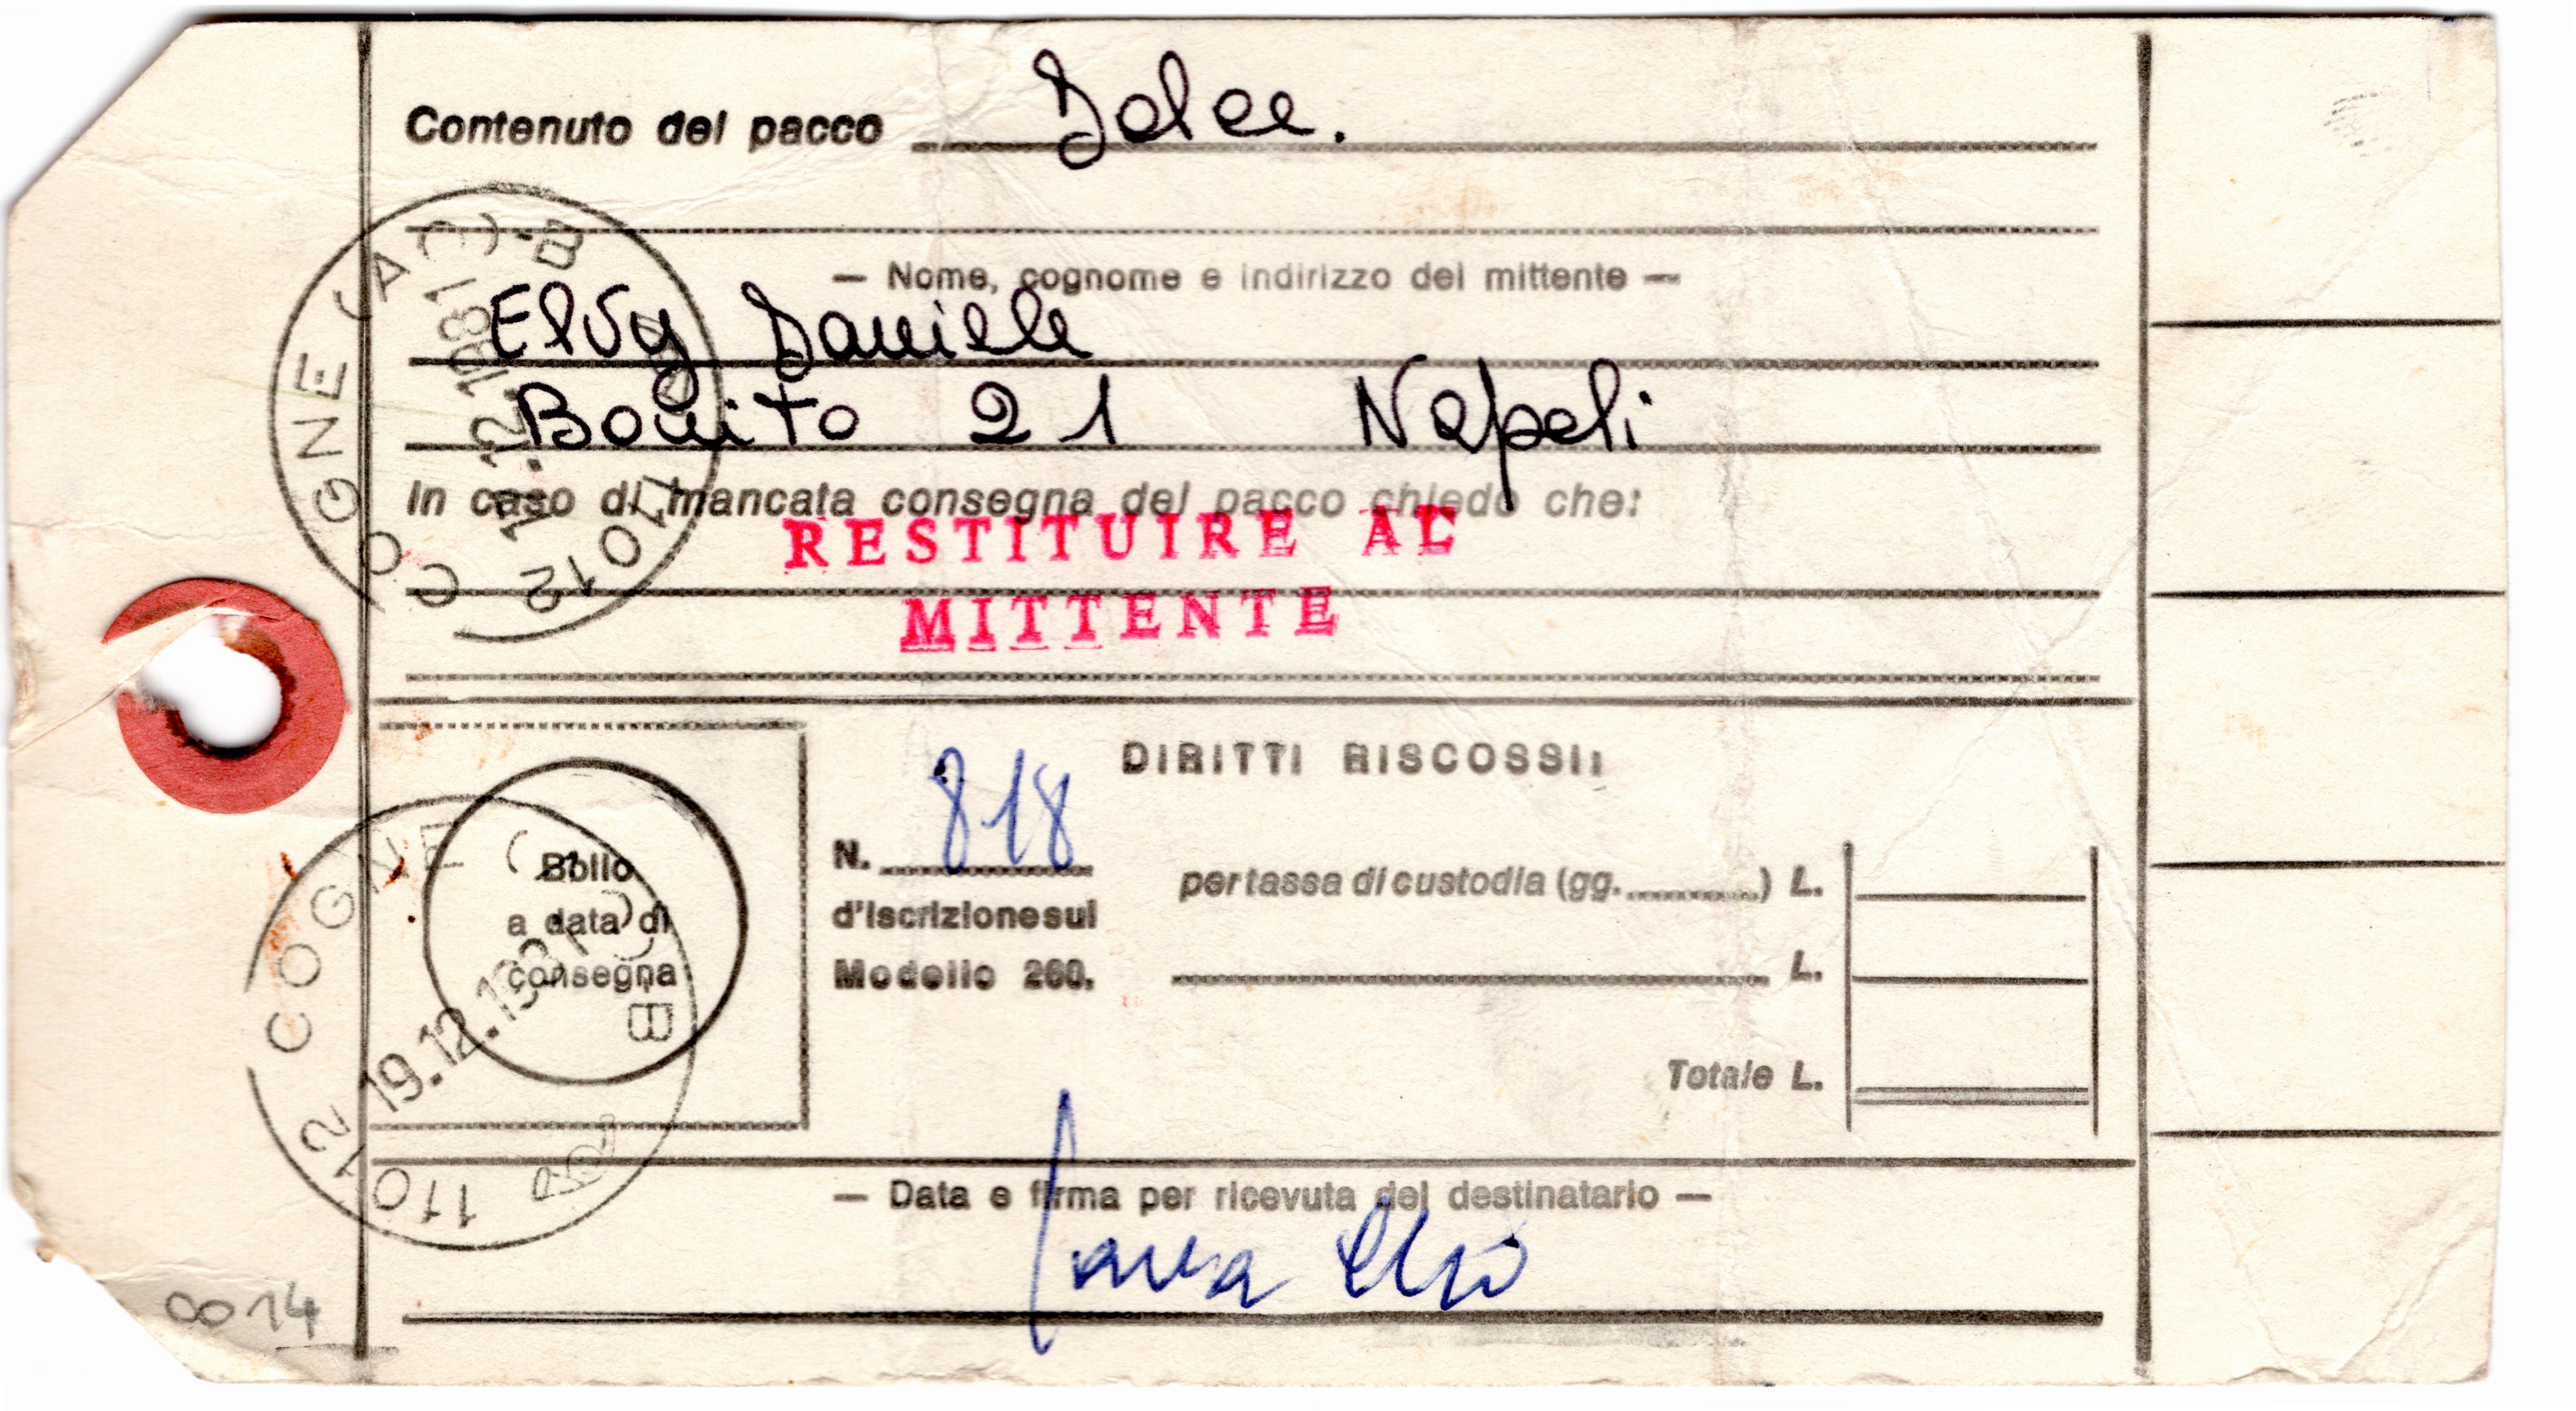 Contenuto del pacco Dolce.
— Nome, cognome e indirizzo del mittente —
Elvy Daniele
Bonito 21 Napoli
In caso di mancata consegna del pacco chiedo che:
RESTITUIRE AL
MITTENTE
11012 COGNE (AO) · B
12.1981
DIRITTI RISCOSSI:
N. 818
d'iscrizione sul
Modello 260.
per tassa di custodia (gg. ) L.
L.
Totale L.
Bollo
a data di
consegna
11012 COGNE (AO) B
19.12.1981
— Data e firma per ricevuta del destinatario —
0014